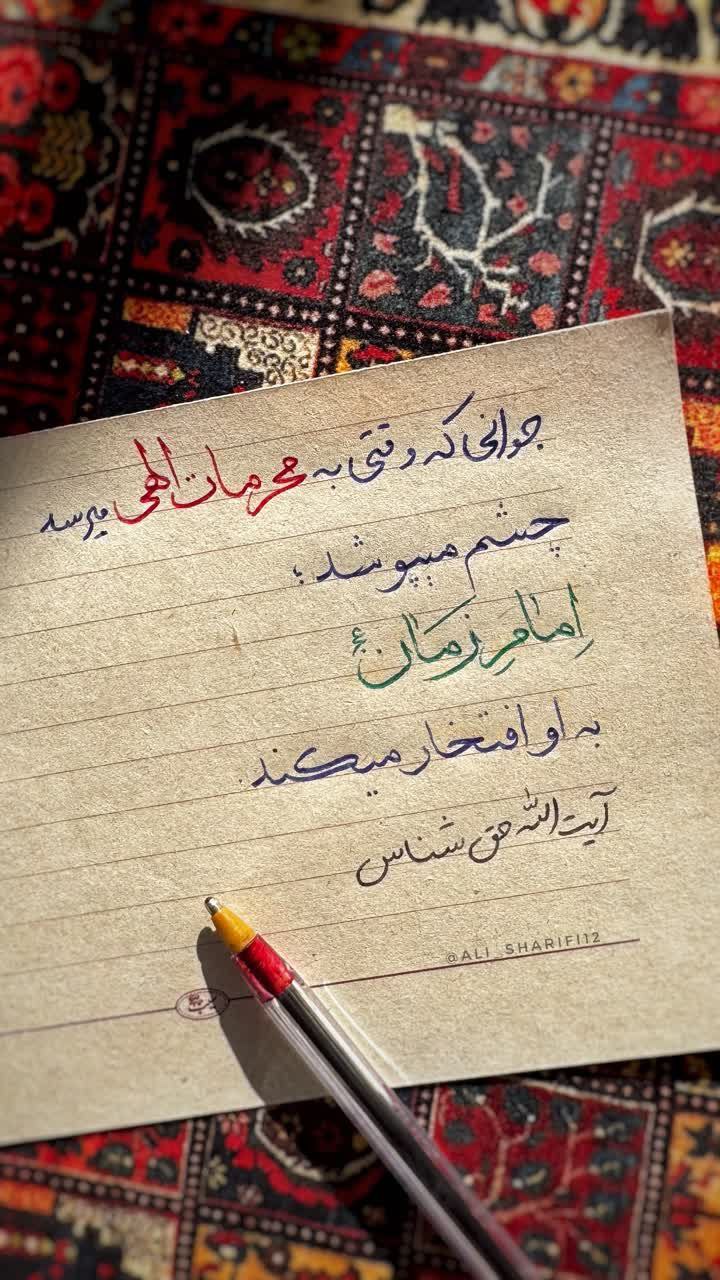 جوانی که وقتی به محرمات الهی میرسه
چشم میپوشد؛
اِمامِ زَمان عج
به او افتخار میکند
آیت الله حق شناس
@ALI_SHARIFI12